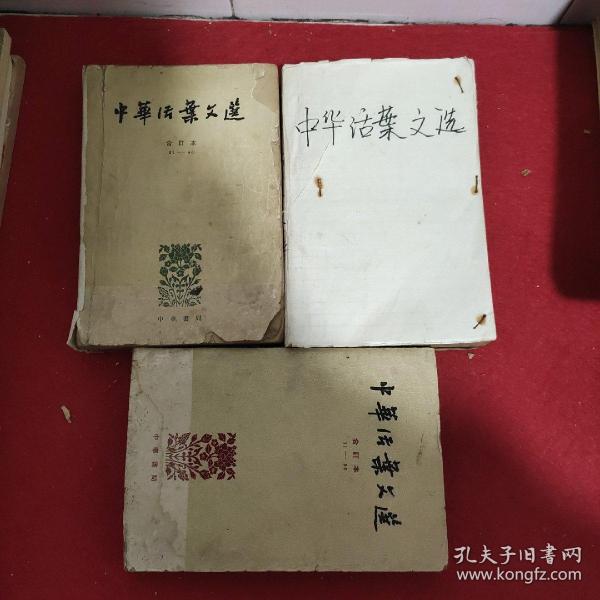 中華活葉文選
合訂本
中華書局
中华活葉文选
中華活葉文選
合訂本
中華書局
孔夫子旧书网
www.kongfz.com